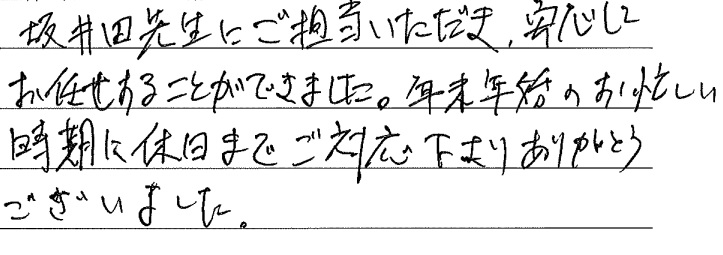 坂井田先生にご担当いただき、安心して
お任せすることができました。年末年始のお忙しい
時期に休日までご対応下さりありがとう
ございました。